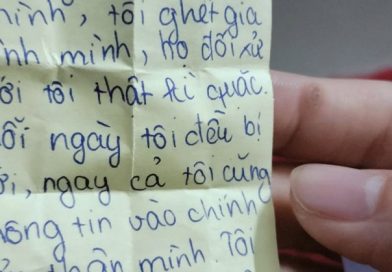 mình, tôi ghét gia
nh mình, họ đối xử
ới tôi thật kì quặc.
ỗi ngày tôi đều bị
ời, ngay cả tôi cũng
ông tin vào chính
thân mình. Tôi